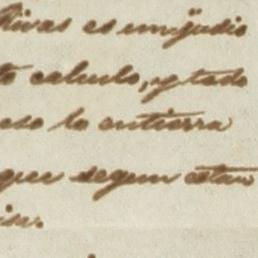 tivas es un judio
to calculo, y todo
eso lo entierra
que segun estan